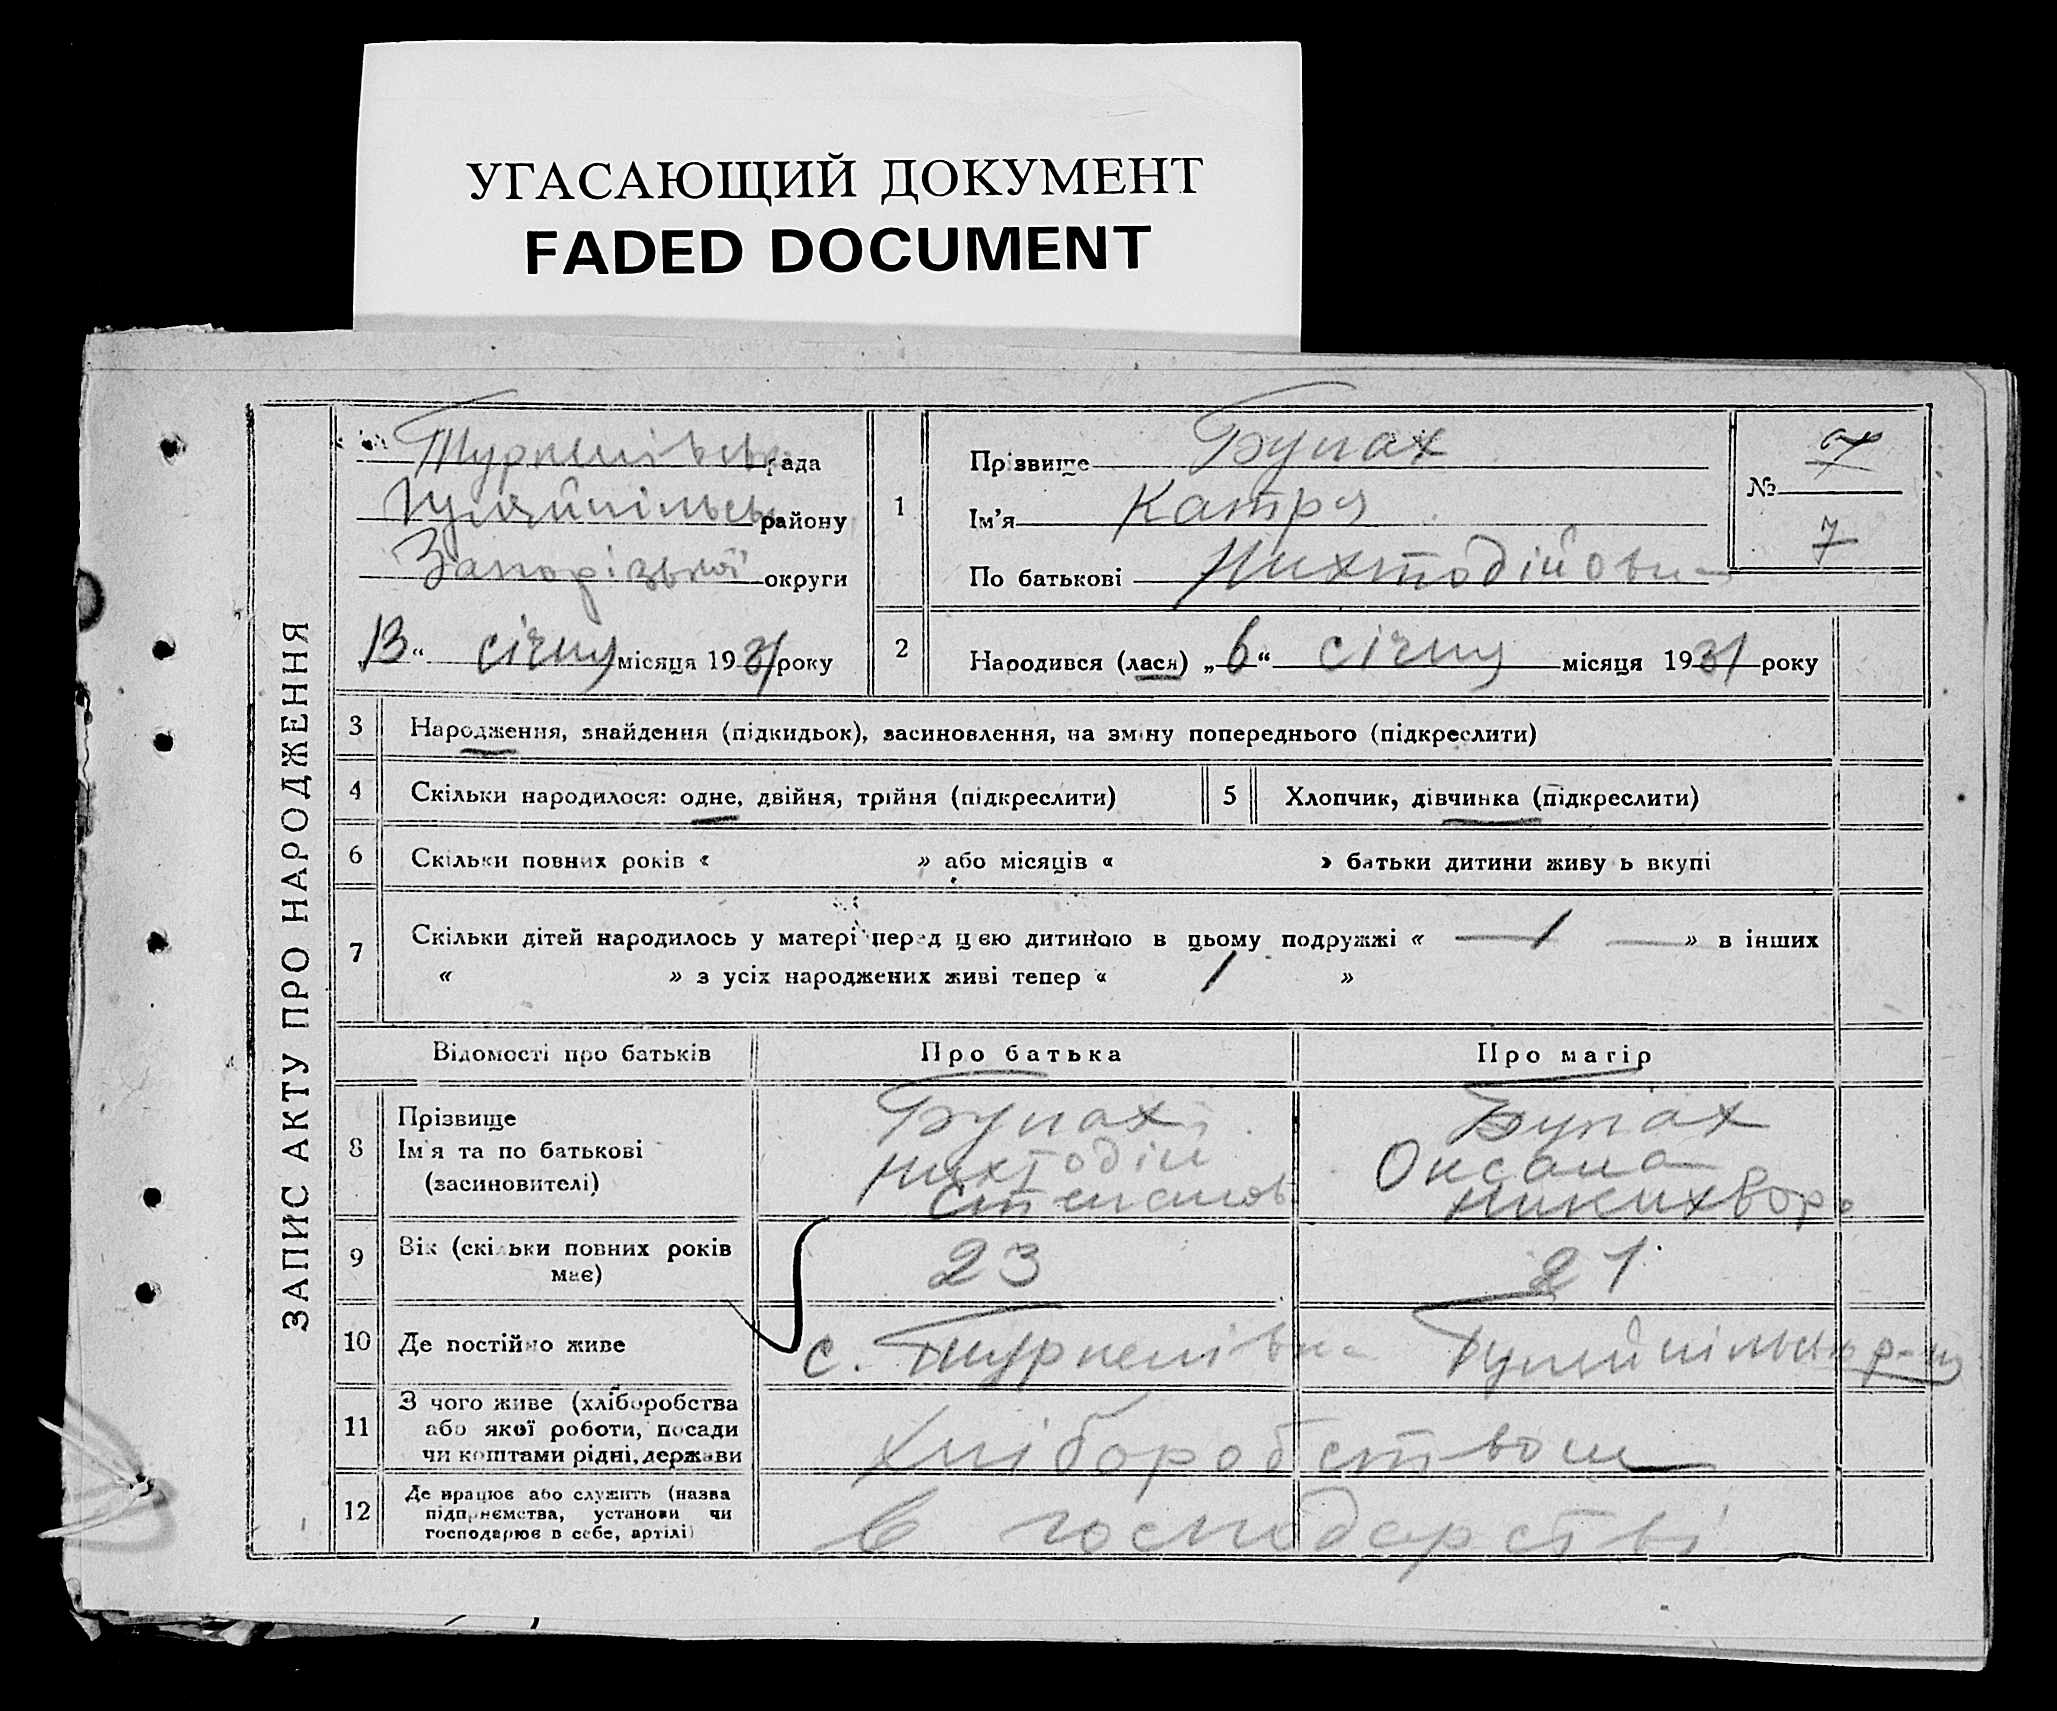 УГАСАЮЩИЙ ДОКУМЕНТ
FADED DOCUMENT
ЗАПИС АКТУ ПРО НАРОДЖЕННЯ
Туркенівськ рада
Гуляйпільськ району
Запорізької округи
„13“ січня місяця 1931 року
1
Прізвище Булах
Ім'я Катря
По батькові Нихтодійовна
№
7
2
Народився (лася) „6“ січня місяця 1931 року
3 Народження, знайдення (підкидьок), засиновлення, на зміну попереднього (підкреслити)
4 Скільки народилося: одне, двійня, трійня (підкреслити)
5 Хлопчик, дівчинка (підкреслити)
6 Скільки повних років « » або місяців « » батьки дитини живуть вкупі
7 Скільки дітей народилось у матері перед цією дитиною в цьому подружжі « 1 » в інших
« » з усіх народжених живі тепер « 1 »
Відомості про батьків Про батька Про матір
8 Прізвище
Ім'я та по батькові
(засиновителі)
Булах
Нихтодій
Степанов
Булах
Оксана
Никихвор
9 Вік (скільки повних років
має)
23
21
10 Де постійно живе
с. Туркенівка Гуляйпільськ р-ну
11 З чого живе (хліборобства
або якої роботи, посади
чи коштами рідні, держави
Хліборобством
12 Де працює або служить (назва
підприємства, установи чи
господарює в себе, артілі)
в господарстві